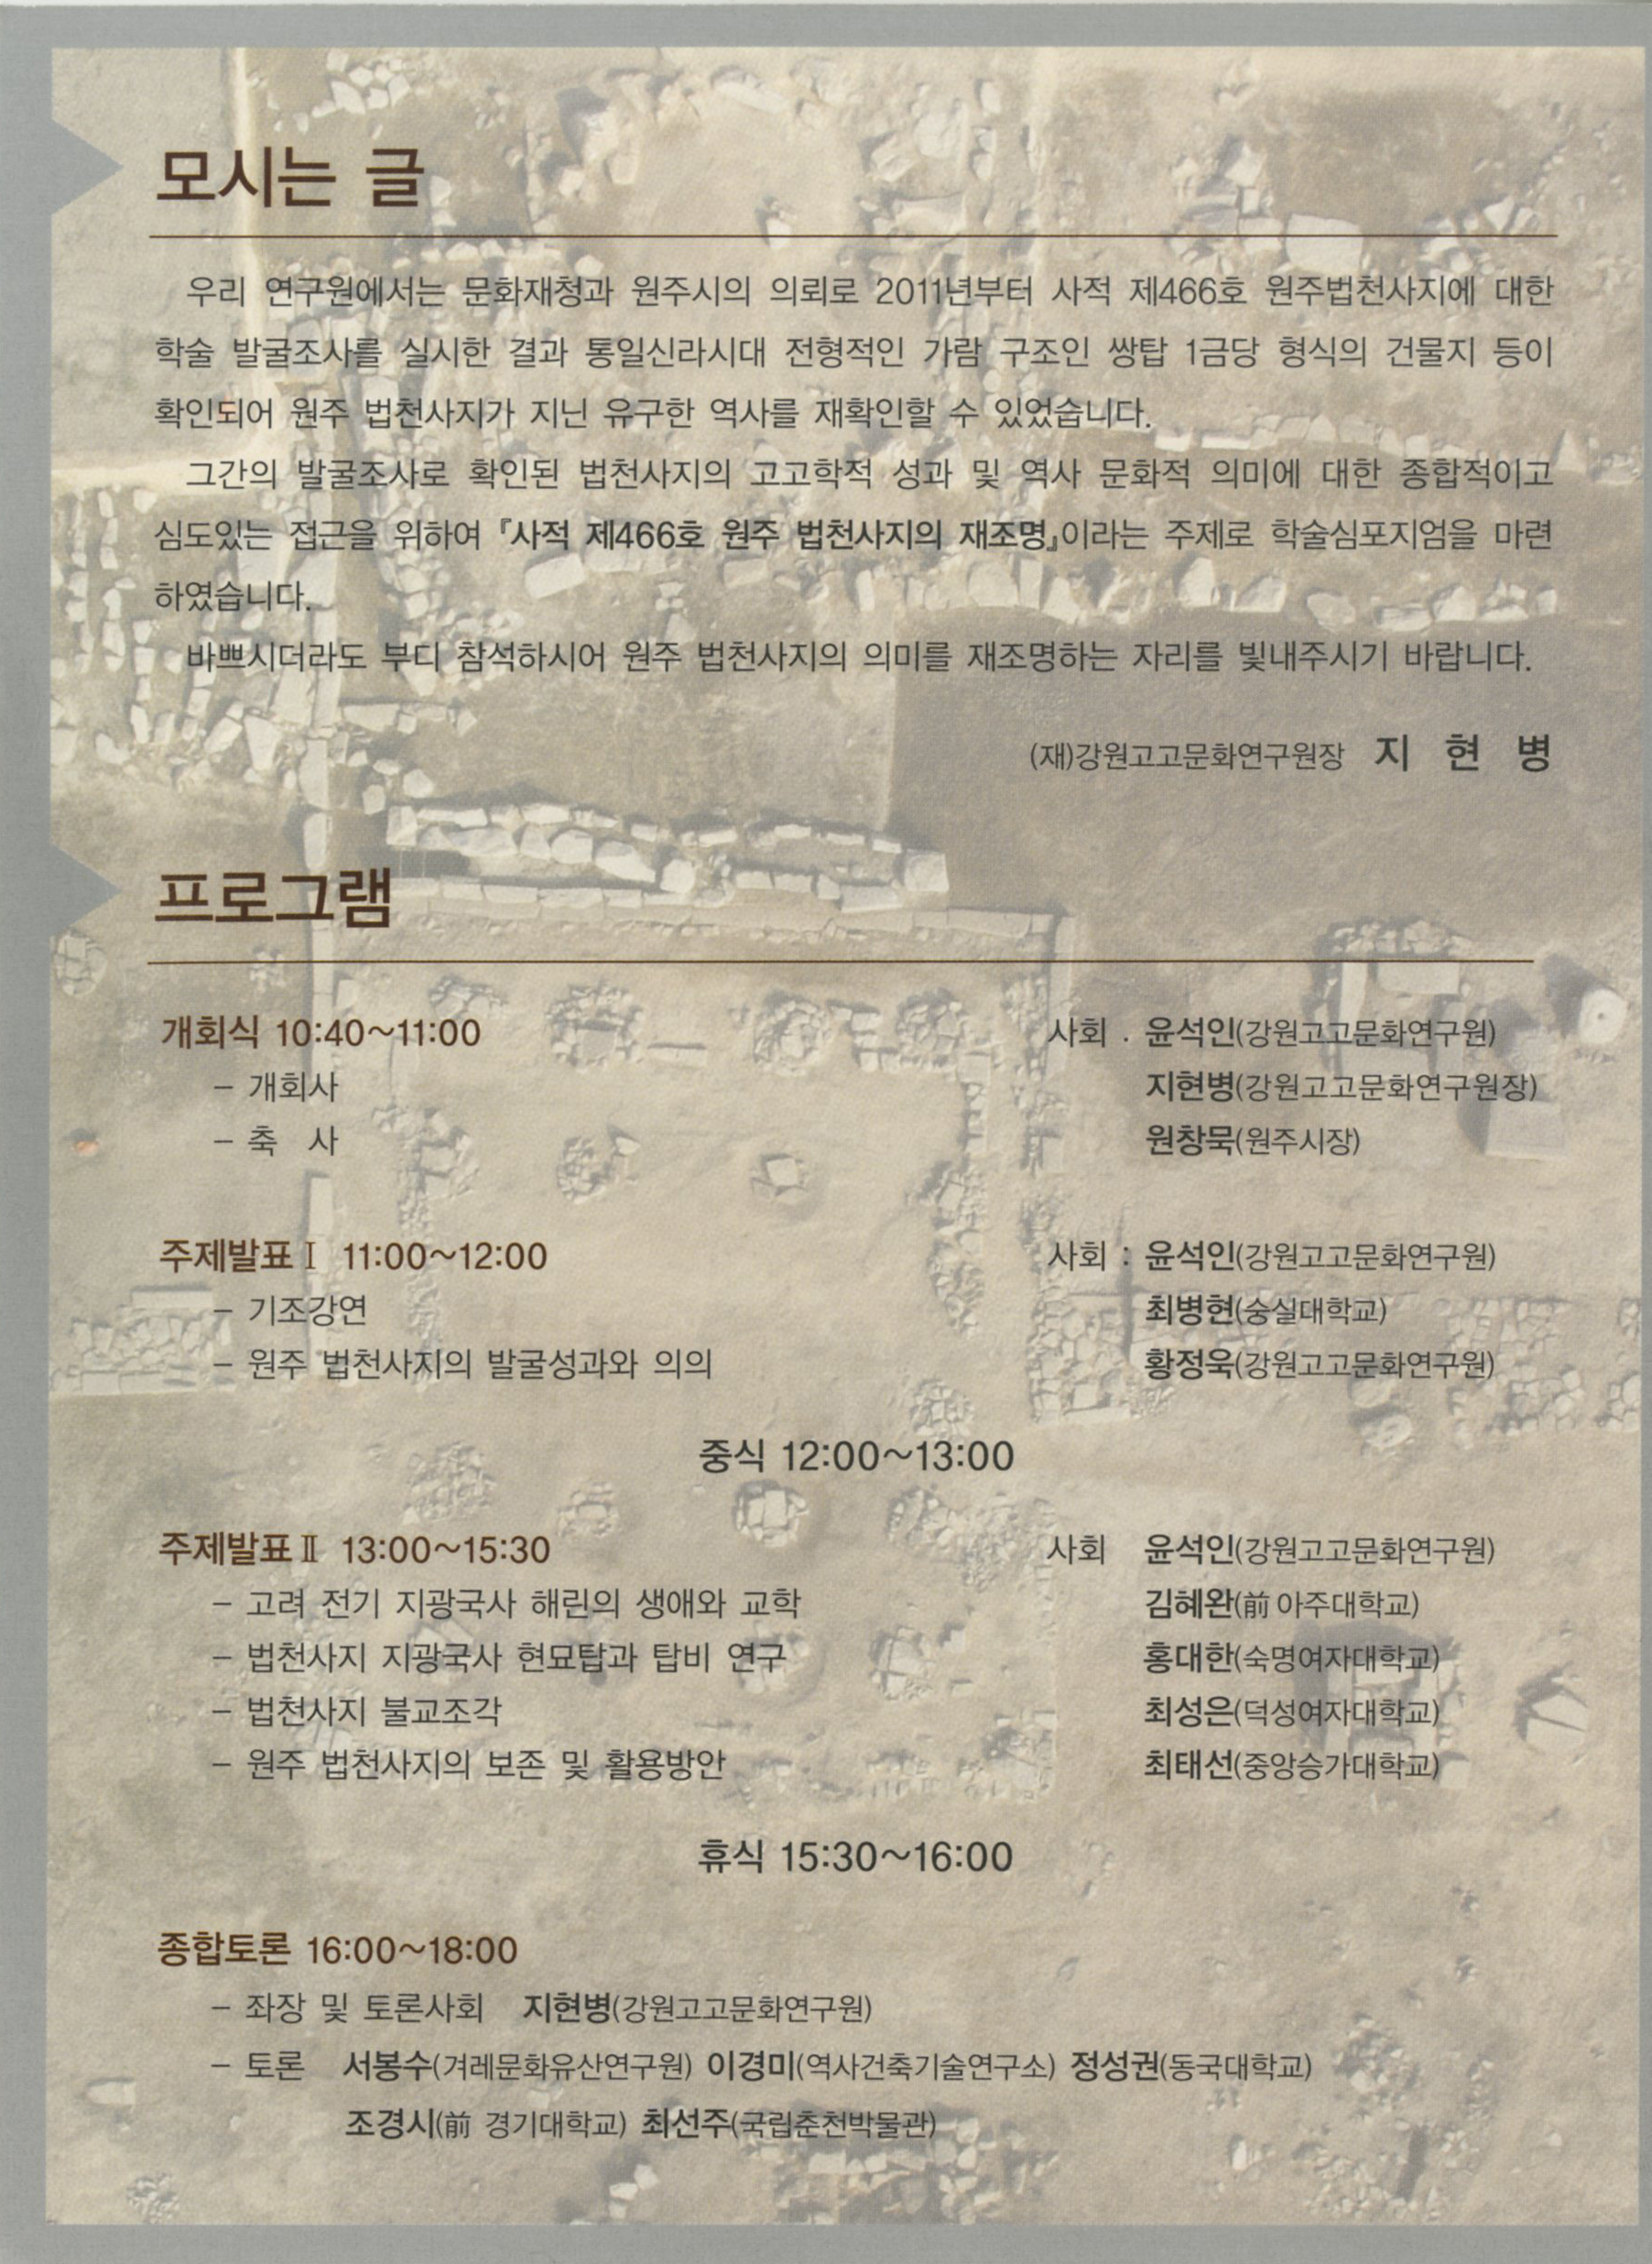 모시는 글
우리 연구원에서는 문화재청과 원주시의 의뢰로 2011년부터 사적 제466호 원주법천사지에 대한
학술 발굴조사를 실시한 결과 통일신라시대 전형적인 가람 구조인 쌍탑 1금당 형식의 건물지 등이
확인되어 원주 법천사지가 지닌 유구한 역사를 재확인할 수 있었습니다.
그간의 발굴조사로 확인된 법천사지의 고고학적 성과 및 역사 문화적 의미에 대한 종합적이고
심도있는 접근을 위하여 『사적 제466호 원주 법천사지의 재조명』이라는 주제로 학술심포지엄을 마련
하였습니다.
바쁘시더라도 부디 참석하시어 원주 법천사지의 의미를 재조명하는 자리를 빛내주시기 바랍니다.
(재)강원고고문화연구원장 지 현 병
프로그램
개회식 10:40~11:00 사회 . 윤석인(강원고고문화연구원)
– 개회사 지현병(강원고고문화연구원장)
– 축 사 원창묵(원주시장)
주제발표Ⅰ 11:00~12:00 사회 : 윤석인(강원고고문화연구원)
– 기조강연 최병현(숭실대학교)
– 원주 법천사지의 발굴성과와 의의 황정욱(강원고고문화연구원)
중식 12:00~13:00
주제발표Ⅱ 13:00~15:30 사회 윤석인(강원고고문화연구원)
– 고려 전기 지광국사 해린의 생애와 교학 김혜완(前 아주대학교)
– 법천사지 지광국사 현묘탑과 탑비 연구 홍대한(숙명여자대학교)
– 법천사지 불교조각 최성은(덕성여자대학교)
– 원주 법천사지의 보존 및 활용방안 최태선(중앙승가대학교)
휴식 15:30~16:00
종합토론 16:00~18:00
– 좌장 및 토론사회 지현병(강원고고문화연구원)
– 토론 서봉수(겨레문화유산연구원) 이경미(역사건축기술연구소) 정성권(동국대학교)
조경시(前 경기대학교) 최선주(국립춘천박물관)